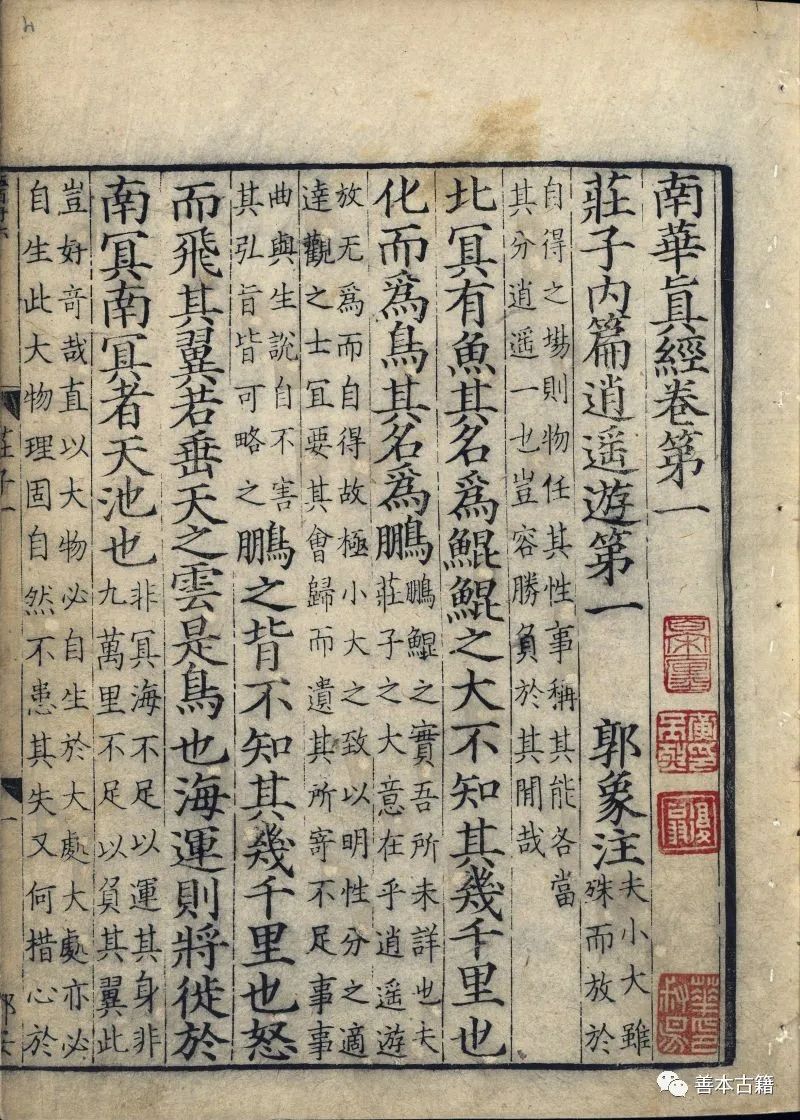 南華眞經卷第一
莊子內篇逍遥遊第一 郭象注 夫小大雖
殊而放於
自得之場則物任其性事稱其能各當
其分逍遥一也豈容勝負於其閒哉
北冥有魚其名爲鯤鯤之大不知其幾千里也
化而爲鳥其名爲鵬 鵬鯤之實吾所未詳也夫
莊子之大意在乎逍遥遊
放无爲而自得故極小大之致以明性分之適
達觀之士冝要其會歸而遺其所寄不足事事
曲與生說自不害
其弘旨皆可略之 鵬之背不知其幾千里也怒
而飛其翼若垂天之雲是鳥也海運則將徙於
南冥南冥者天池也 非冥海不足以運其身非
九萬里不足以負其翼此
豈好奇哉直以大物必自生於大處大處亦必
自生此大物理固自然不患其失又何措心於
莊子一
一
善本古籍